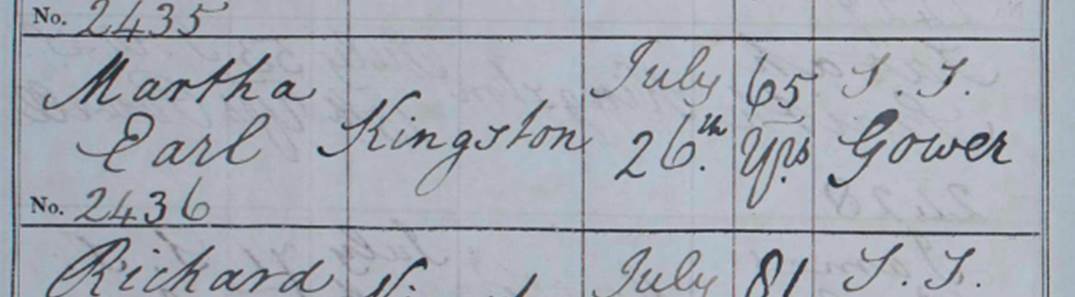 No. 2435
Martha Earl Kingston July 26.th 65 Yrs S. T. Gower
No. 2436
Richard July 81 S. T.